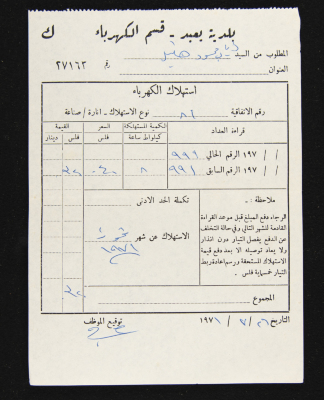 بلدية يعبد - قسم الكهرباء ك
المطلوب من السيد محمود
العنوان رقم ٢٧١٦٣
استهلاك الكهرباء
رقم الاتفاقية ٨٢ نوع الاستهلاك - انارة / صناعة
قراءة العداد الكمية المستهلكة كيلواط ساعة السعر فلس القيمة فلس دينار
/ / ١٩٧ الرقم الحالي ٩٩٩
/ / ١٩٧ الرقم السابق ٩٩١ ٨ ٠٤٠ ٣٢٠
ملاحظة : تكملة الحد الادنى
الرجاء دفع المبلغ قبل موعد القراءة
القادمة للشهر التالي وفي حالة التخلف
عن الدفع يفصل التيار دون انذار
ولا يعاد توصيله الا بعد دفع قيمة
الاستهلاك المستحقة ورسم اعادة ربط
التيار خمسماية فلس .
الاستهلاك عن شهر
١٩٧١
المجموع ٣٢٠
التاريخ ٢٦ / ٣ / ١٩٧١ توقيع الموظف